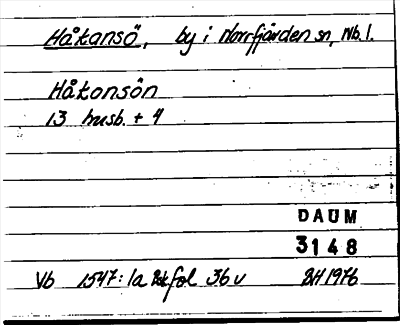 Håkansö, by i Norrfjärden sn, Nb. l.
Håkonsön
13 husb. + 4
DAUM
3148
Vb 1547: 1a fol 36 v BH 1976